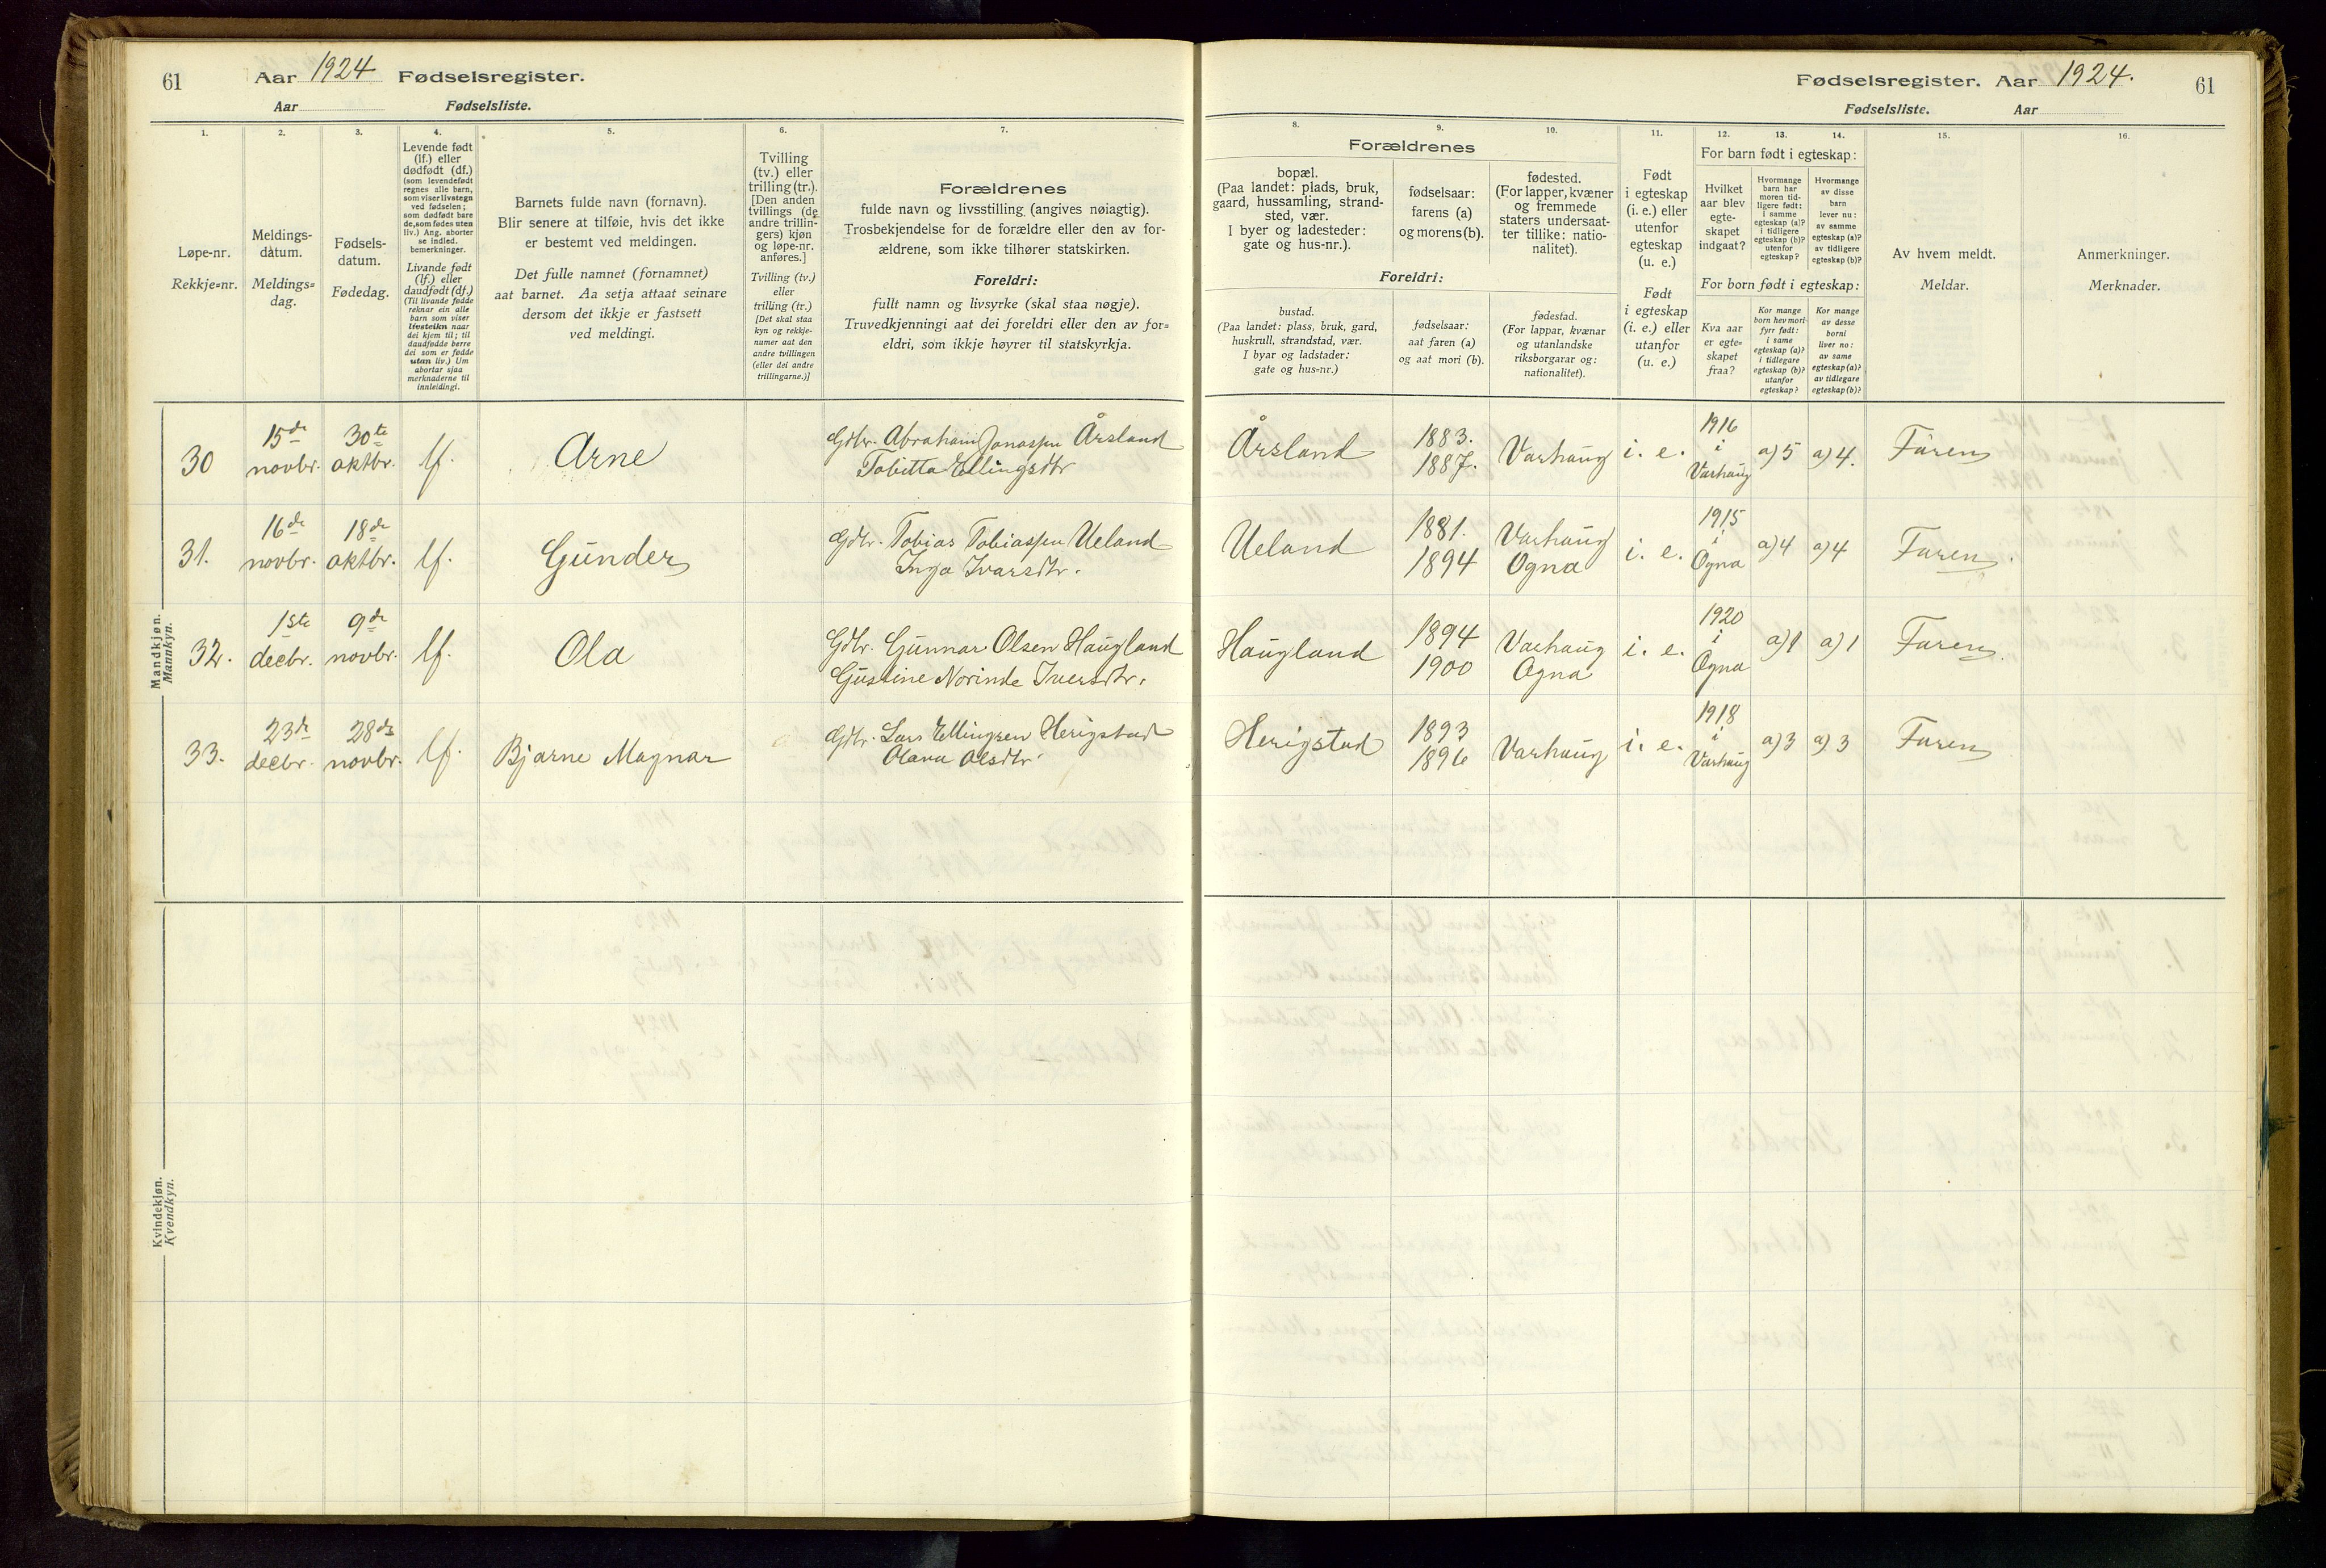 61 Aar 1924 Fødselsregister.
Aar Fødselsliste.
Fødselsregister. Aar 1924. 61
Fødselsliste. Aar
1.
Løpe-nr.
Rekkje=nr.
2.
Meldings-
dàtum.
Meldings=
dag.
3.
Fødsels-
datum.
Fødedag.
4.
Levende født
(lf.) eller
dødfødt (df.)
(som levendefødt
regnes alle barn,
som viser livstegn
ved fødselen;
som dødfødt bare
de, som fødes uten
liv.) Ang. aborter
se indled.
bemerkninger.
Livande født
(lf.) eller
daudfødt (df.)
(Til livande fødde
reknar ein alle
barn som viser
livsteikn naar
dei kjem til; til
daudfødde berre
dei som er fødde
utan liv.) Um
abortar sjaa
merknaderne til
innleidingi.
5.
Barnets fulde navn (fornavn).
Blir senere at tilføie, hvis det ikke
er bestemt ved meldingen.
Det fulle namnet (fornamnet)
aat barnet. Aa setja attaat seinare
dersom det ikkje er fastsett
ved meldingi.
6.
Tvilling
(tv.) eller
trilling (tr.).
[Den anden
tvillings (de
andre trillin-
gers) kjøn
og løpe-nr.
anføres.]
Tvilling (tv.)
eller
trilling (tr.)
[Det skal staa
kyn og rekkje-
numer aat den
andre tvillingen
(eller dei andre
trillingarne.)]
7.
Forældrenes
fulde navn og livsstilling (angives nøiagtig).
Trosbekjendelse for de forældre eller den av for-
ældrene, som ikke tilhører statskirken.
Foreldri:
fullt namn og livsyrke (skal staa nøgje).
Truvedkjenningi aat dei foreldri eller den av for=
eldri, som ikkje høyrer til statskyrkja.
Forældrenes
8.
bopæl.
(Paa landet: plads, bruk,
gaard, hussamling, strand-
sted, vær.
I byer og ladesteder:
gate og hus-nr.).
9.
fødselsaar:
farens (a)
og morens (b).
10.
fødested.
(For lapper, kvæner
og fremmede
staters undersaat-
ter tillike: natio-
nalitet).
Foreldri:
bustad.
(Paa landet: plass, bruk, gard,
huskrull, strandstad, vær.
I byar og ladstader:
gate og hus=nr.)
fødselsaar:
aat faren (a)
og aat mori (b).
fødestad.
(For lappar, kvænar
og utanlandske
riksborgarar og:
nationalitet).
11.
Født
i egteskap
(i. e.) eller
utenfor
egteskap
(u. e.)
Født
i egteskap
(i. e.) eller
utanfor
(u. e.)
12. 13. 14.
For barn født i egteskap:
Hvilket
aar blev
egte-
skapet
indgaat?
Hvormange
barn har
moren tid-
ligere født:
i samme
egteskap (a)?
i tidligere
egteskap (b)?
utenfor
egteskap?
Hvormange
av disse
barn
lever nu:
av samme
egteskap (a)?
av tidligere
egteskap (b)?
For born født i egteskap:
Kva aar
er egte=
skapet
fraa?
Kor mange
born hev mori
fyrr født:
i same
egteskap (a)?
i tidlegare
egteskap (b)?
utanfor
egteskap?
Kor mange
av desse
borni
liver no:
av same
egteskap (a)?
av tidlegare
egteskap (b)?
15.
Av hvem meldt.
Meldar.
16.
Anmerkninger.
Merknader.
Mandkjøn.
Mannkyn.
30 15de novbr. 30te oktbr. lf. Arne Gdbr. Abraham Jonassen Årsland
Tobitta Ellingsdtr
Årsland 1883. 1887. Varhaug i. e. 1916 i Varhaug a) 5 a) 4. Faren
31. 16de novbr. 18de oktbr. lf. Gunder Gdbr. Tobias Tobiassen Ueland
Inga Ivarsdtr.
Ueland 1881. 1894 Varhaug Ogna i. e. 1915 i Ogna a) 4 a) 4 Faren.
32. 1ste decbr. 9de novbr. lf. Ola Gdbr. Gunnar Olsen Haugland
Gustine Norinde Iversdtr.
Haugland 1894 1900 Varhaug Ogna i. e. 1920 i Ogna a) 1 a) 1 Faren
33. 23de decbr. 28de novbr. lf. Bjarne Magnar Gdbr. Lars Ellingsen Herigstad
Olava Olsdtr.
Herigstad 1893 1896 Varhaug i. e. 1918 i Varhaug a) 3 a) 3 Faren
Kvindekjøn.
Kvendkyn.